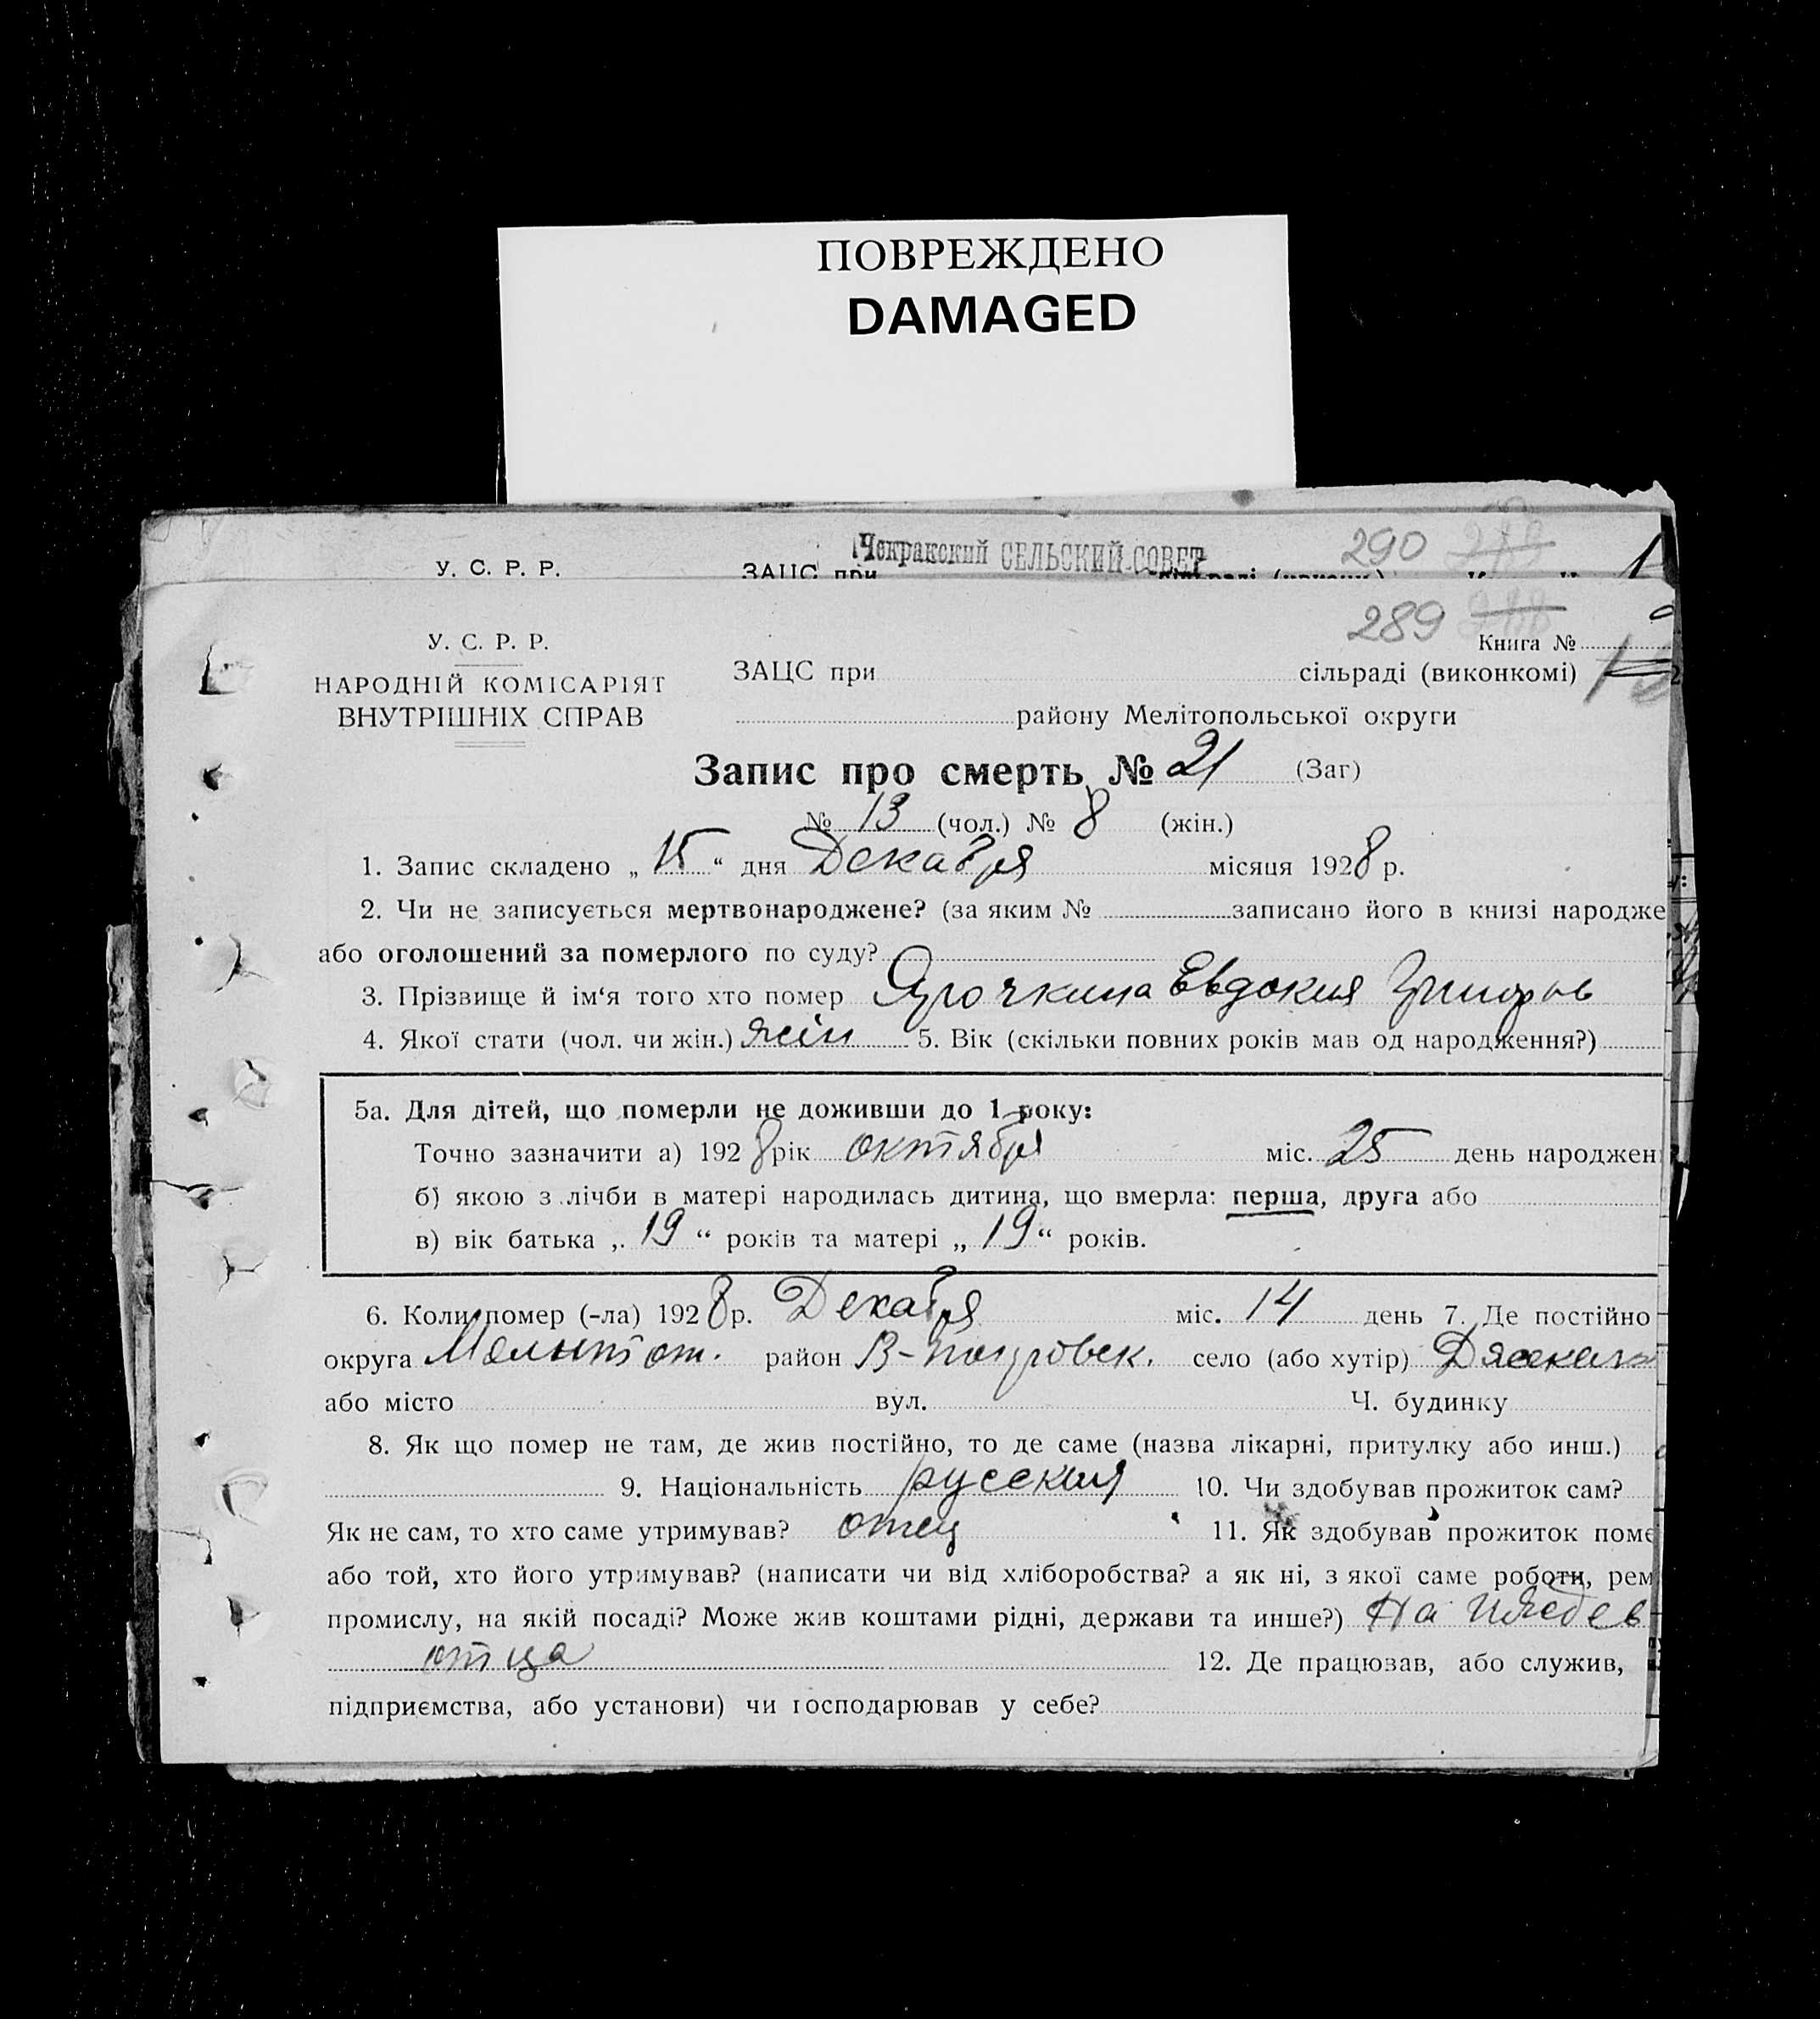 ПОВРЕЖДЕНО
DAMAGED
Чокракский СЕЛЬСКИЙ СОВЕТ 290
У. С. Р. Р. ЗАЦС при
289
У. С. Р. Р. Книга №
НАРОДНІЙ КОМІСАРІЯТ ЗАЦС при сільраді (виконкомі)
ВНУТРІШНІХ СПРАВ району Мелітопольської округи
Запис про смерть № 21 (Заг)
№ 13 (чол.) № 8 (жін.)
1. Запис складено „ 15 “ дня Декабря місяця 1928 р.
2. Чи не записується мертвонароджене? (за яким № записано його в книзі народже
або оголошений за померлого по суду?
3. Прізвище й ім‘я того хто помер Евдокия Григорьв
4. Якої стати (чол. чи жін.) жін 5. Вік (скільки повних років мав од народження?)
5а. Для дітей, що померли не доживши до 1 року:
Точно зазначити а) 1928 рік октября міс. 25 день народжен
б) якою з лічби в матері народилась дитина, що вмерла: перша, друга або
в) вік батька „ 19 “ років та матері „ 19 “ років.
6. Коли помер (-ла) 1928 р. Декабря міс. 14 день 7. Де постійно
округа район В-Покровск. село (або хутір)
або місто вул. Ч. будинку
8. Як що помер не там, де жив постійно, то де саме (назва лікарні, притулку або инш.)
9. Національність русския 10. Чи здобував прожиток сам?
Як не сам, то хто саме утримував? отец 11. Як здобував прожиток поме
або той, хто його утримував? (написати чи від хліборобства? а як ні, з якої саме роботи, рем
промислу, на якій посаді? Може жив коштами рідні, держави та инше?) На
отца 12. Де працював, або служив,
підприємства, або установи) чи господарював у себе?